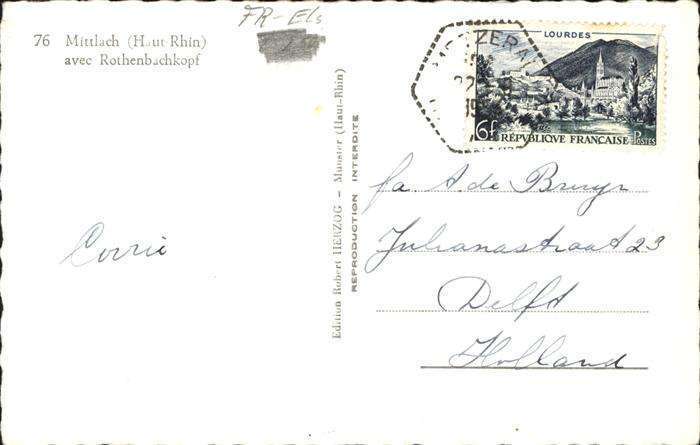 FR-Els
76 Mittlach (Haut Rhin)
avec Rothenbachkopf
LOURDES
6f RÉPUBLIQUE FRANÇAISE POSTES
Edition Robert HERZOG – Munster (Haut-Rhin)
REPRODUCTION INTERDITE
fa A. de Bruyn
Julianastraat 23
Delft
Holland
Corrie